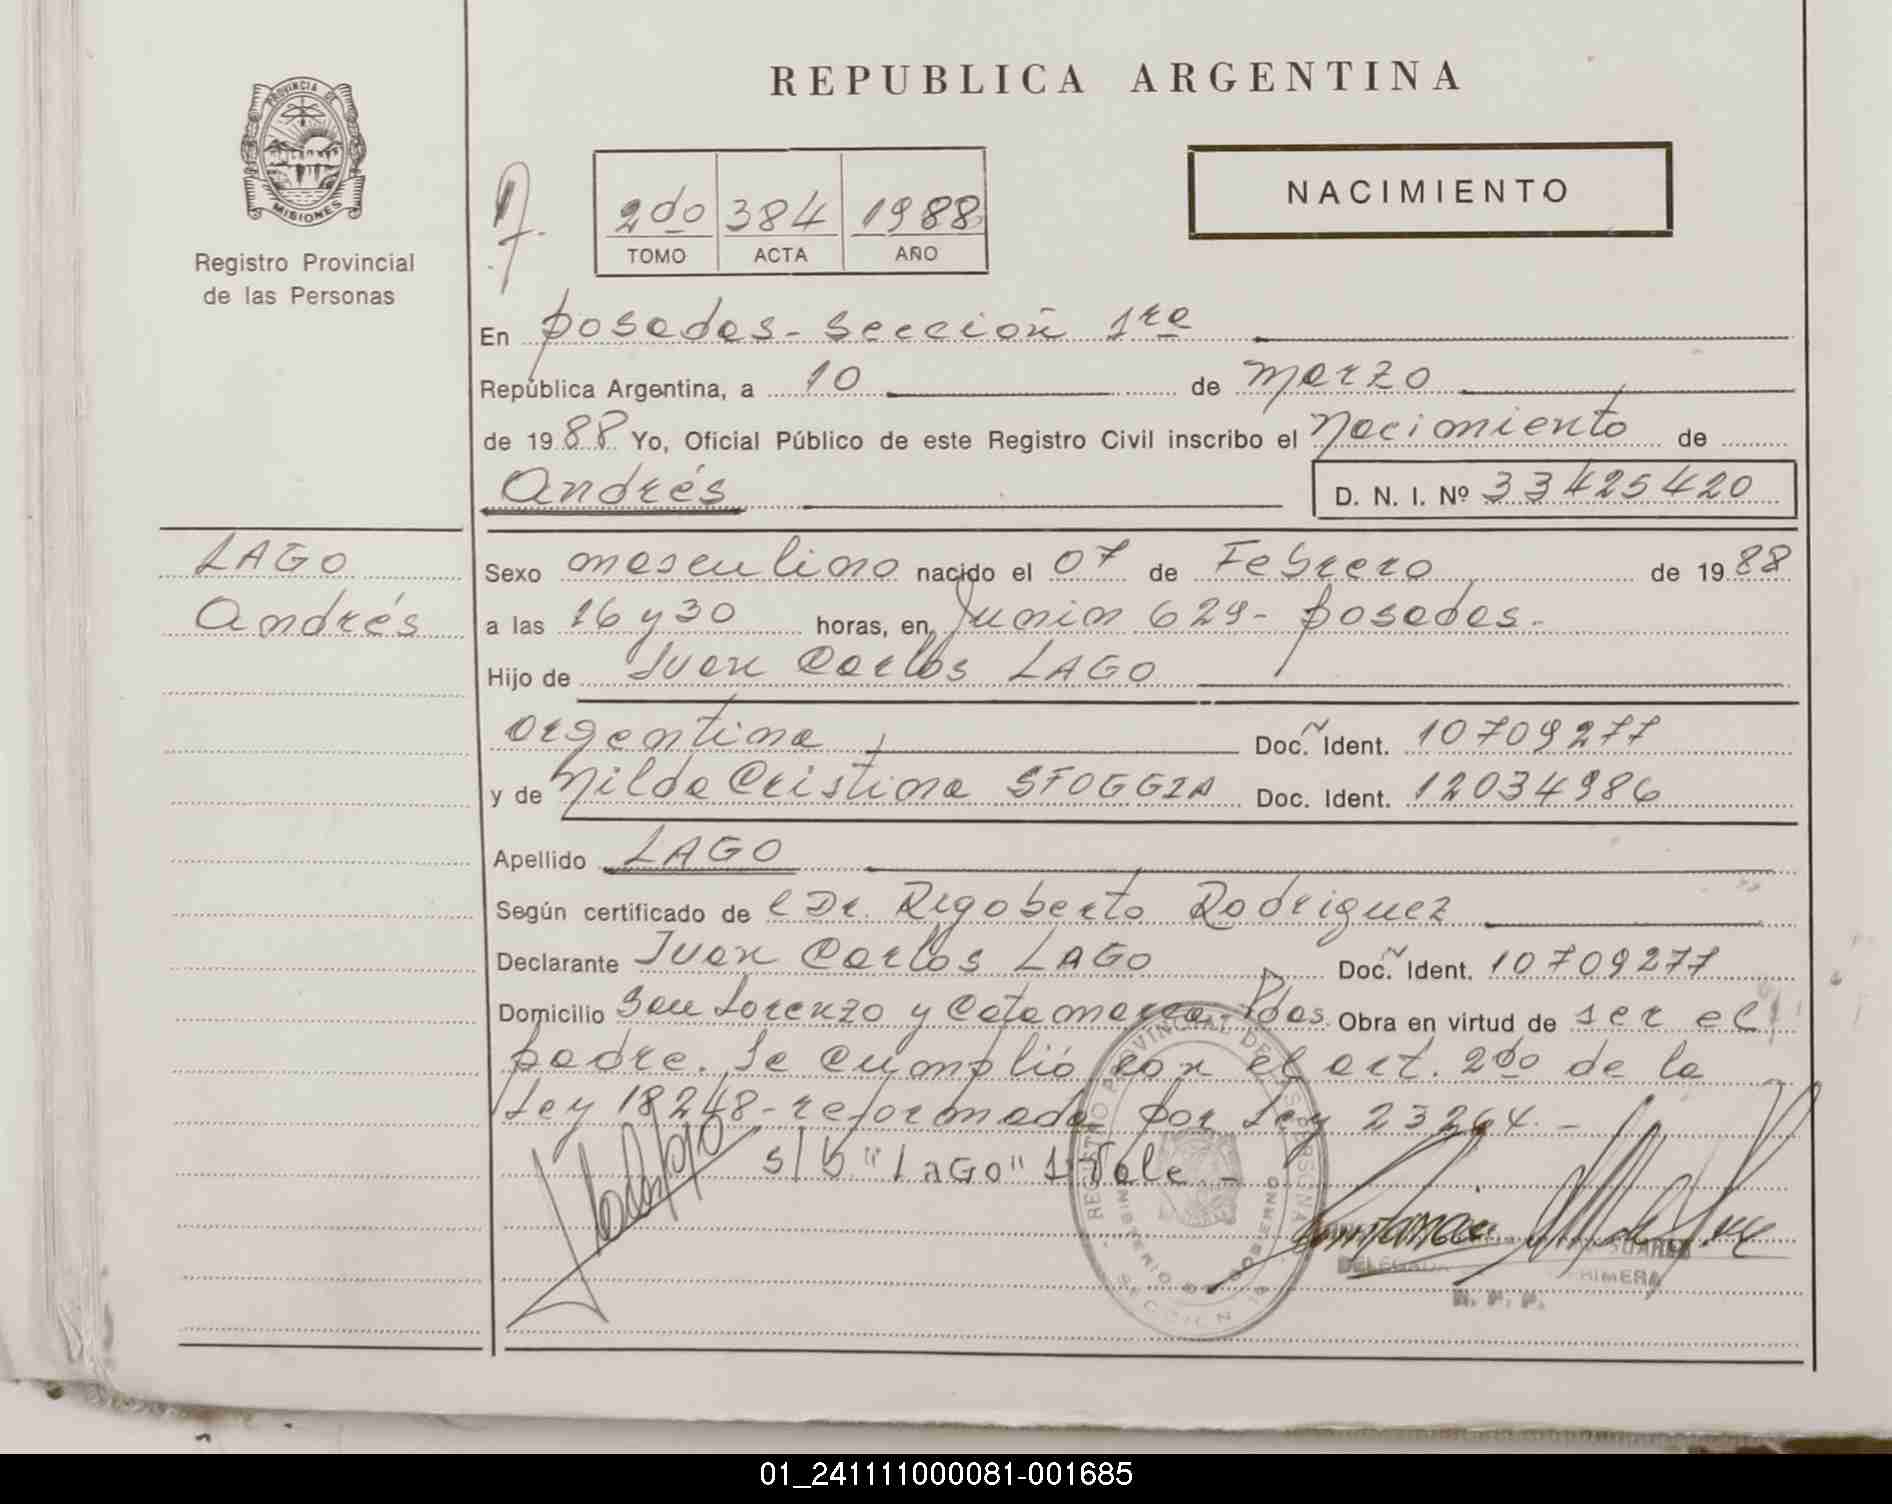 PROVINCIA DE
MISIONES
Registro Provincial
de las Personas
REPUBLICA ARGENTINA
NACIMIENTO
2do 384 1988
TOMO ACTA AÑO
En Posadas - Sección 1ra
República Argentina, a 10 de Marzo
de 1988 Yo, Oficial Público de este Registro Civil inscribo el Nacimiento de
Andrés D. N. I. Nº 33425420
LAGO
Andrés
Sexo masculino nacido el 07 de Febrero de 1988
a las 16 y 30 horas, en Junin 629 - Posadas.
Hijo de Juan Carlos LAGO
argentina Doc. Ident. 10709277
y de Nilda Cristina STOGGIA Doc. Ident. 12034986
Apellido LAGO
Según certificado de el Dr. Rigoberto Rodriguez
Declarante Juan Carlos LAGO Doc. Ident. 10709277
Domicilio San Lorenzo y Catamarca - Pdas. Obra en virtud de ser el
padre. Se cumplió con el art. 2do de la
Ley 18248 - reformada por Ley 23264. -
S/b "LAGO" 1 Vale -
REGISTRO PROVINCIAL DE LAS PERSONAS
MINISTERIO DE GOBIERNO
SECCION
SUAREZ
DELEGADA PRIMERA
R. P. P.
01_241111000081-001685